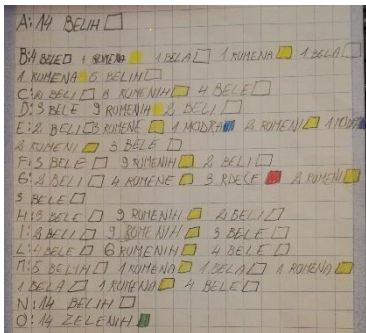 A: 14 BELIH
B: 4 BELE 1 RUMENA 1 BELA 1 RUMENA 1 BELA
1 RUMENA 5 BELIH
C: 2 BELI 8 RUMENIH 4 BELE
D: 3 BELE 9 RUMENIH 2 BELI
E: 2 BELI 3 RUMENE 1 MODRA 2 RUMENI 1 MODRA
2 RUMENI 3 BELE
F: 3 BELE 9 RUMENIH 2 BELI
G: 2 BELI 4 RUMENE 3 RDEČE 2 RUMENI
3 BELE
H: 3 BELE 9 RUMENIH 2 BELI
I: 2 BELI 9 RUMENIH 3 BELE
L: 4 BELE 6 RUMENIH 4 BELE
M: 5 BELIH 1 RUMENA 1 BELA 1 RUMENA
1 BELA 1 RUMENA 4 BELE
N: 14 BELIH
O: 14 ZELENIH